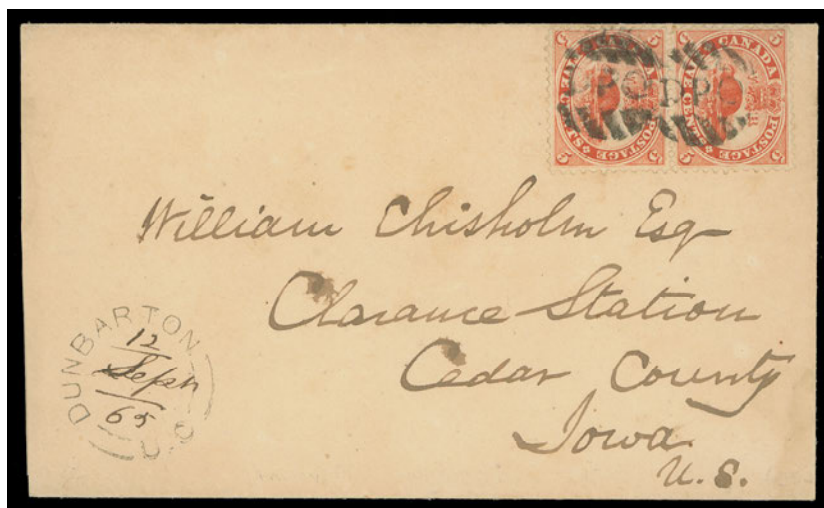 CANADA POSTAGE FIVE CENTS 5 5 5 5
CANADA POSTAGE FIVE CENTS 5 5 5 5
DPO DPO
William Chisholm Esq
Clarance Station
Cedar County
Iowa
U. S.
DUNBARTON U.C
12
Sept
65